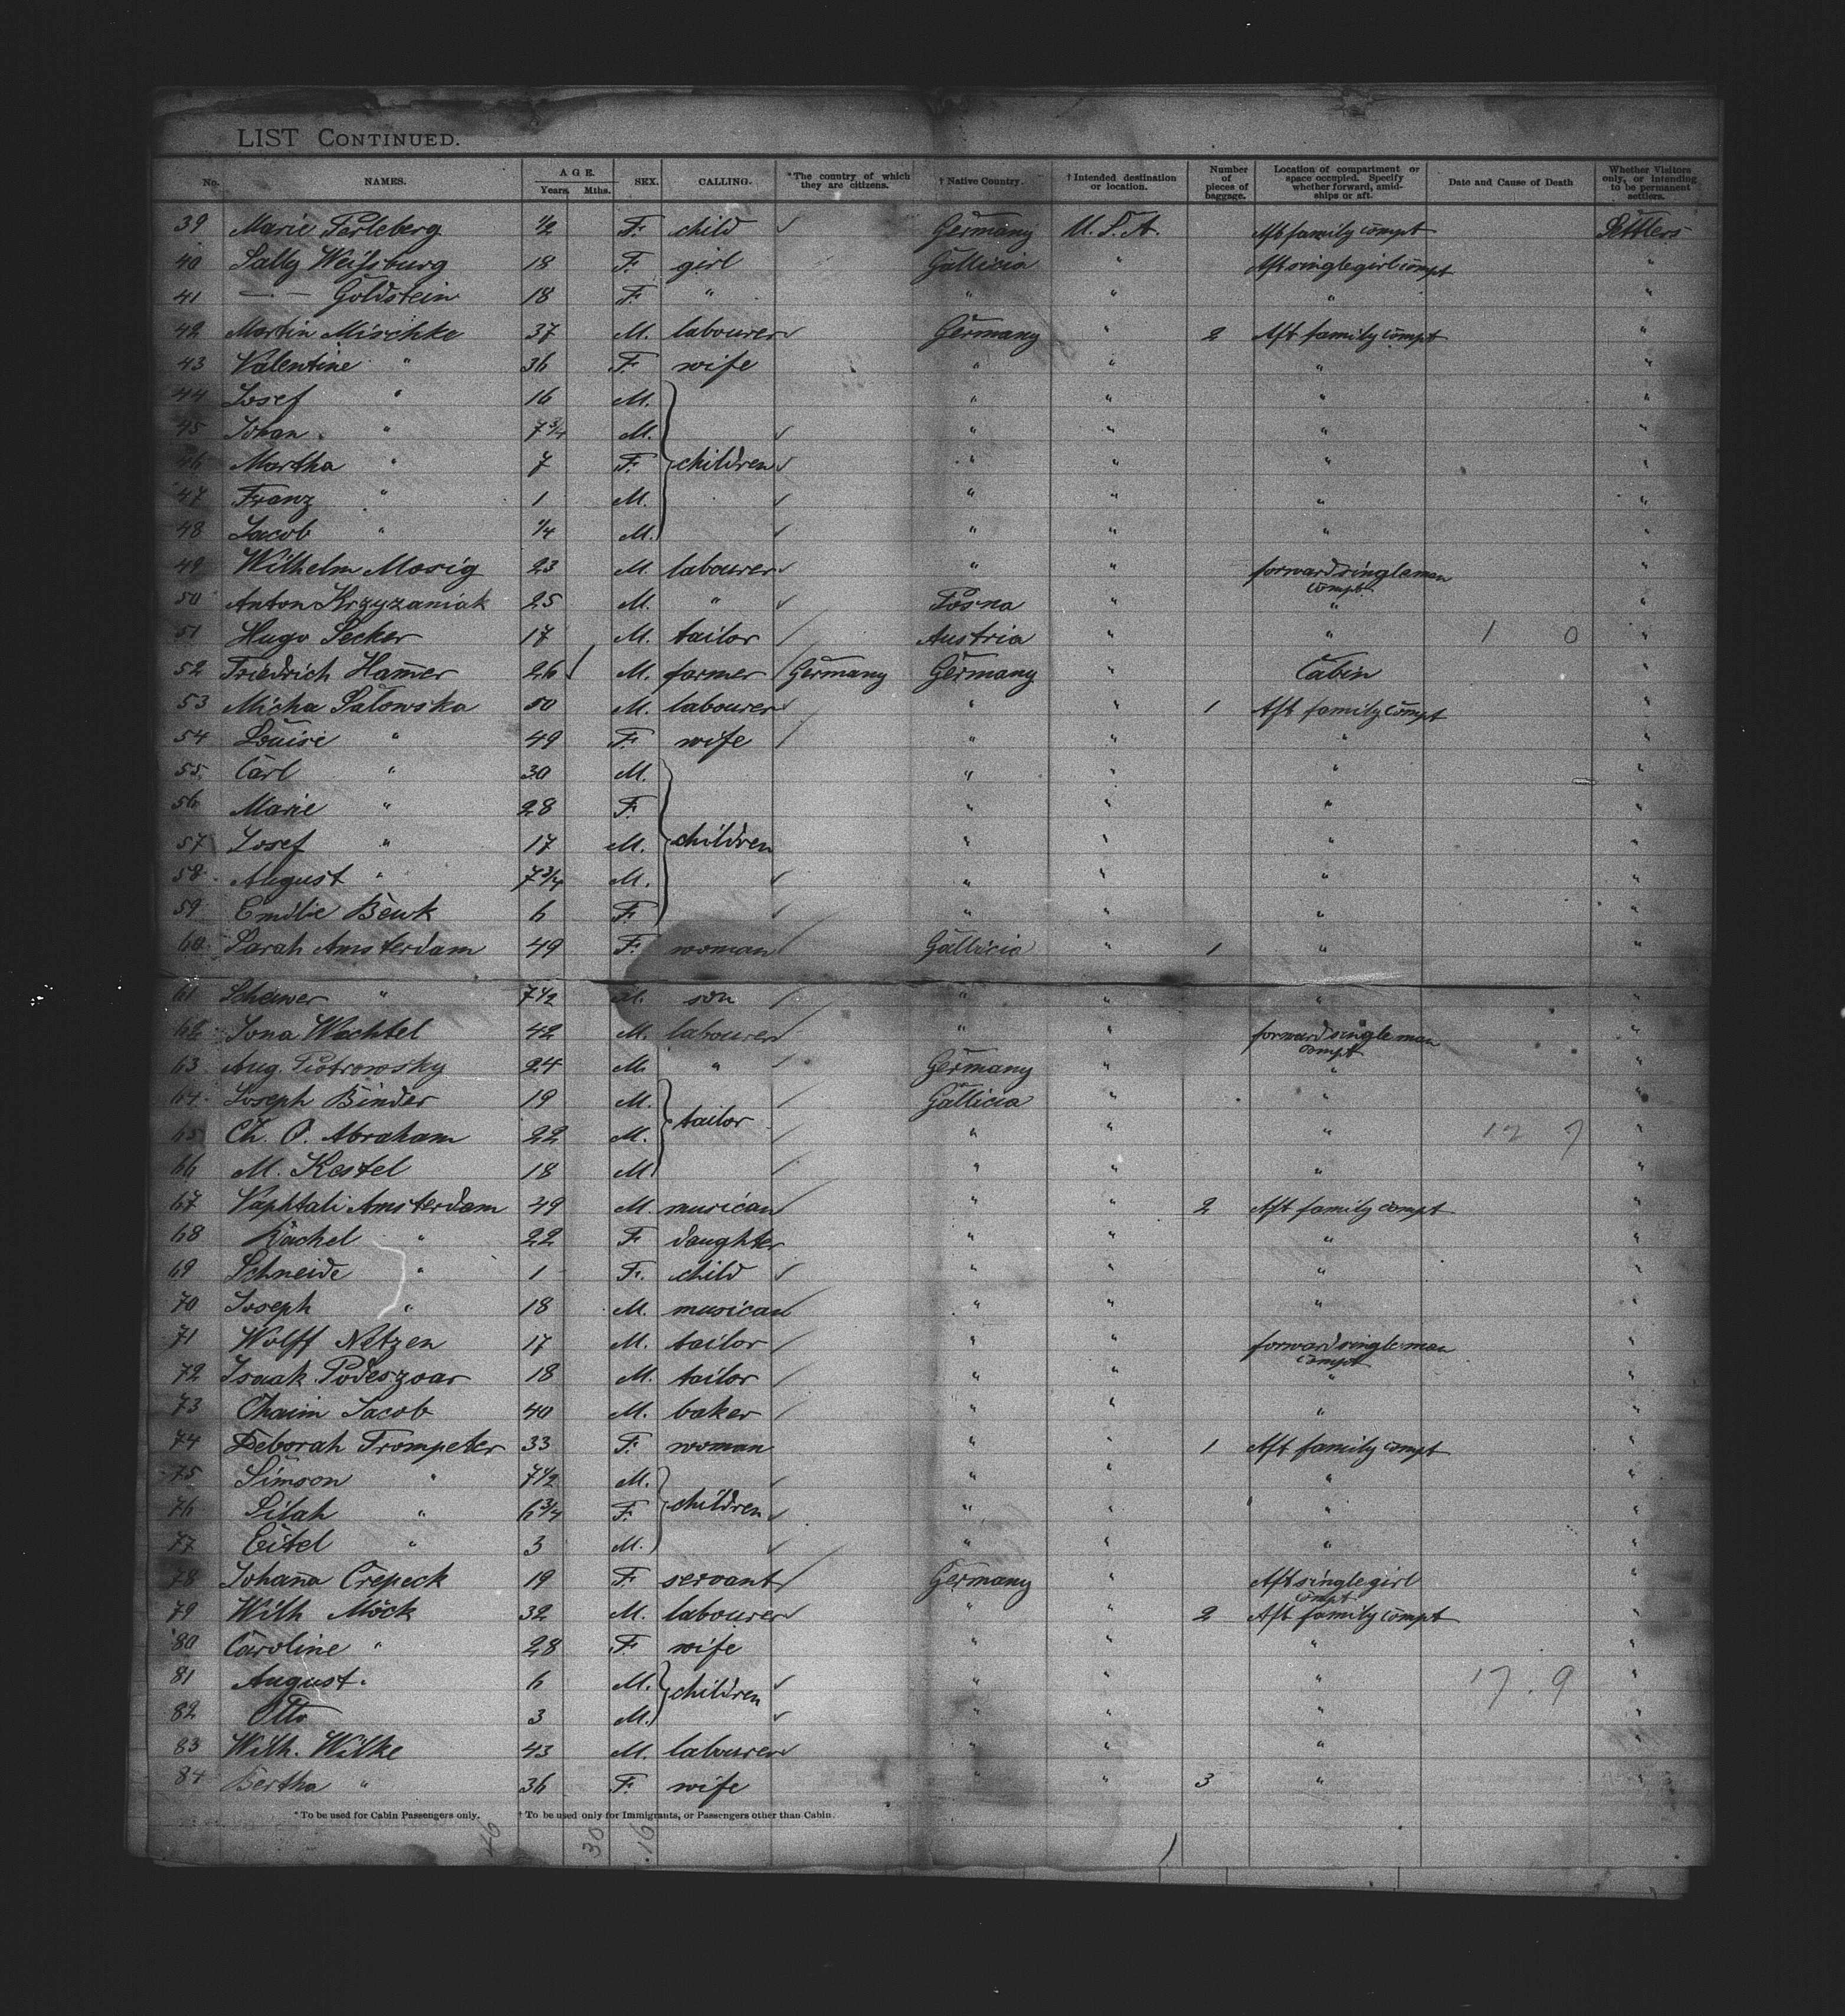 LIST CONTINUED.
No. NAMES. AGE. Years. Mths. SEX. CALLING. *The country of which they are citizens. † Native Country. † Intended destination or location. Number of pieces of baggage. Location of compartment or space occupied. Specify whether forward, amidships or aft. Date and Cause of Death Whether Visitors only, or intending to be permanent settlers.
39 Marie Perleberg 1/2 F. child ✓ Germany U.S.A. Aft family compt Settlers
40 Sally Weissburg 18 F. girl Gallicia " Aft single girl compt "
41 — — Goldstein 18 F. " " " " "
42 Martin Mischke 37 M. labourer ✓ Germany " 2 Aft family compt "
43 Valentine " 36 F. wife " " " "
44 Josef " 16 M. " " " "
45 Johan " 7 3/4 M. ✓ " " " "
46 Martha " 7 F. children ✓ " " " "
47 Franz " 1 M. ✓ " " " "
48 Jacob " 1/4 M. ✓ " " " "
49 Wilhelm Mosig 23 M. labourer ✓ " " forward single men compt "
50 Anton Krzyzaniak 25 M. " ✓ Posna " " "
51 Hugo Secker 17 M. tailor / Austria " " 1 0 "
52 Friedrich Ham̄er 26 M. farmer Germany Germany " Cabin "
53 Micha Salowska 50 M. labourer ✓ " " 1 Aft family compt "
54 Louise " 49 F. wife / " " " "
55 Carl " 30 M. " " " "
56 Marie " 28 F. " " " "
57 Josef " 17 M. children " " " "
58 August " 7 3/4 M. ✓ " " " "
59 Emilie Beuk 6 F. ✓ " " " "
60 Sarah Amsterdam 49 F. woman / Gallicia " 1 " "
61 " 7 1/2 M. son / " " " "
62 Jona Wachtel 42 M. labourer / " " forward single men compt "
63 Aug. Piotrowsky 24 M. " / Germany " " "
64 Joseph Binder 19 M. / Gallicia " " "
65 Ch. O. Abraham 22 M. tailor / " " " 12 7 "
66 M. Kestel 18 M. / " " " "
67 Naphtali Amsterdam 49 M. musican / " " 2 Aft family compt "
68 Rachel " 22 F. daughter " " " "
69 Schneide " 1 F. child ✓ " " " "
70 Joseph " 18 M. musican " " " "
71 Wolff Netzen 17 M. tailor / " " forward single men compt "
72 Isaak Podeszoar 18 M. tailor / " " " "
73 Chaim Jacob 40 M. baker / " " " "
74 Deborah Trompeter 33 F. woman " " 1 Aft family compt "
75 Simson " 7 1/2 M. ✓ " " " "
76 Silah " 6 3/4 F. children ✓ " " " "
77 Eitel " 3 M. ✓ " " " "
78 Johan̄a Crepeck 19 F. servant / Germany " Aft single girl compt "
79 Wilh Möck 32 M. labourer ✓ " " 2 Aft family compt "
80 Caroline " 28 F. wife " " " "
81 August " 6 M. children ✓ " " " 17 . 9 "
82 Otto 3 M. ✓ " " " "
83 Wilh. Wilke 43 M. labourer ✓ " " " "
84 Bertha " 36 F. wife " " 3 " "
*To be used for Cabin Passengers only. † To be used only for Immigrants, or Passengers other than Cabin.
46 30 16